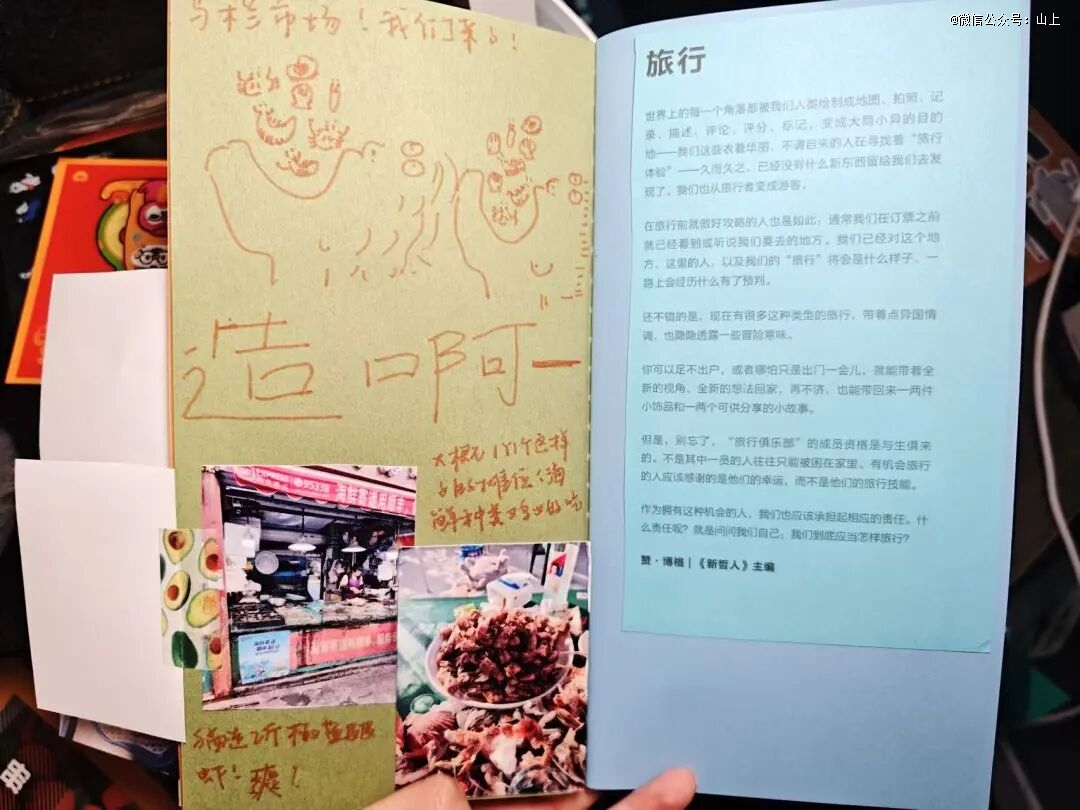 @微信公众号：山上
乌梢市场！我们来了！
造 口啊一
海鲜
虾！爽！
95338
海鲜寄递用顺丰
旅行
世界上的每一个角落都被我们人类绘制成地图、拍照、记
录、描述、评论、评分、标记，变成大同小异的目的
地——我们这些衣着华丽、不请自来的人在寻找着“旅行
体验”——久而久之，已经没有什么新东西留给我们去发
现了。我们也从旅行者变成游客。
在旅行前就做好攻略的人也是如此：通常我们在订票之前
就已经看到或听说我们要去的地方。我们已经对这个地
方、这里的人，以及我们的“旅行”将会是什么样子、一
路上会经历什么有了预判。
还不错的是，现在有很多这种类型的旅行，带着点异国情
调，也隐隐透露一些冒险意味。
你可以足不出户，或者哪怕只是出门一会儿，就能带着全
新的视角、全新的想法回家，再不济，也能带回来一两件
小饰品和一两个可供分享的小故事。
但是，别忘了，“旅行俱乐部”的成员资格是与生俱来
的。不是其中一员的人往往只能被困在家里。有机会旅行
的人应该感谢的是他们的幸运，而不是他们的旅行技能。
作为拥有这种机会的人，我们也应该承担起相应的责任。什
么责任呢？就是问问我们自己：我们到底应当怎样旅行？
赞·博格|《新哲人》主编